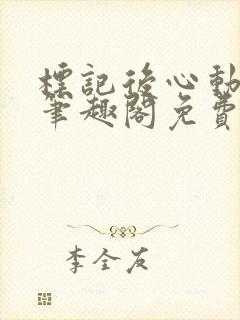 標記後心動
筆趣閣免費
李全友